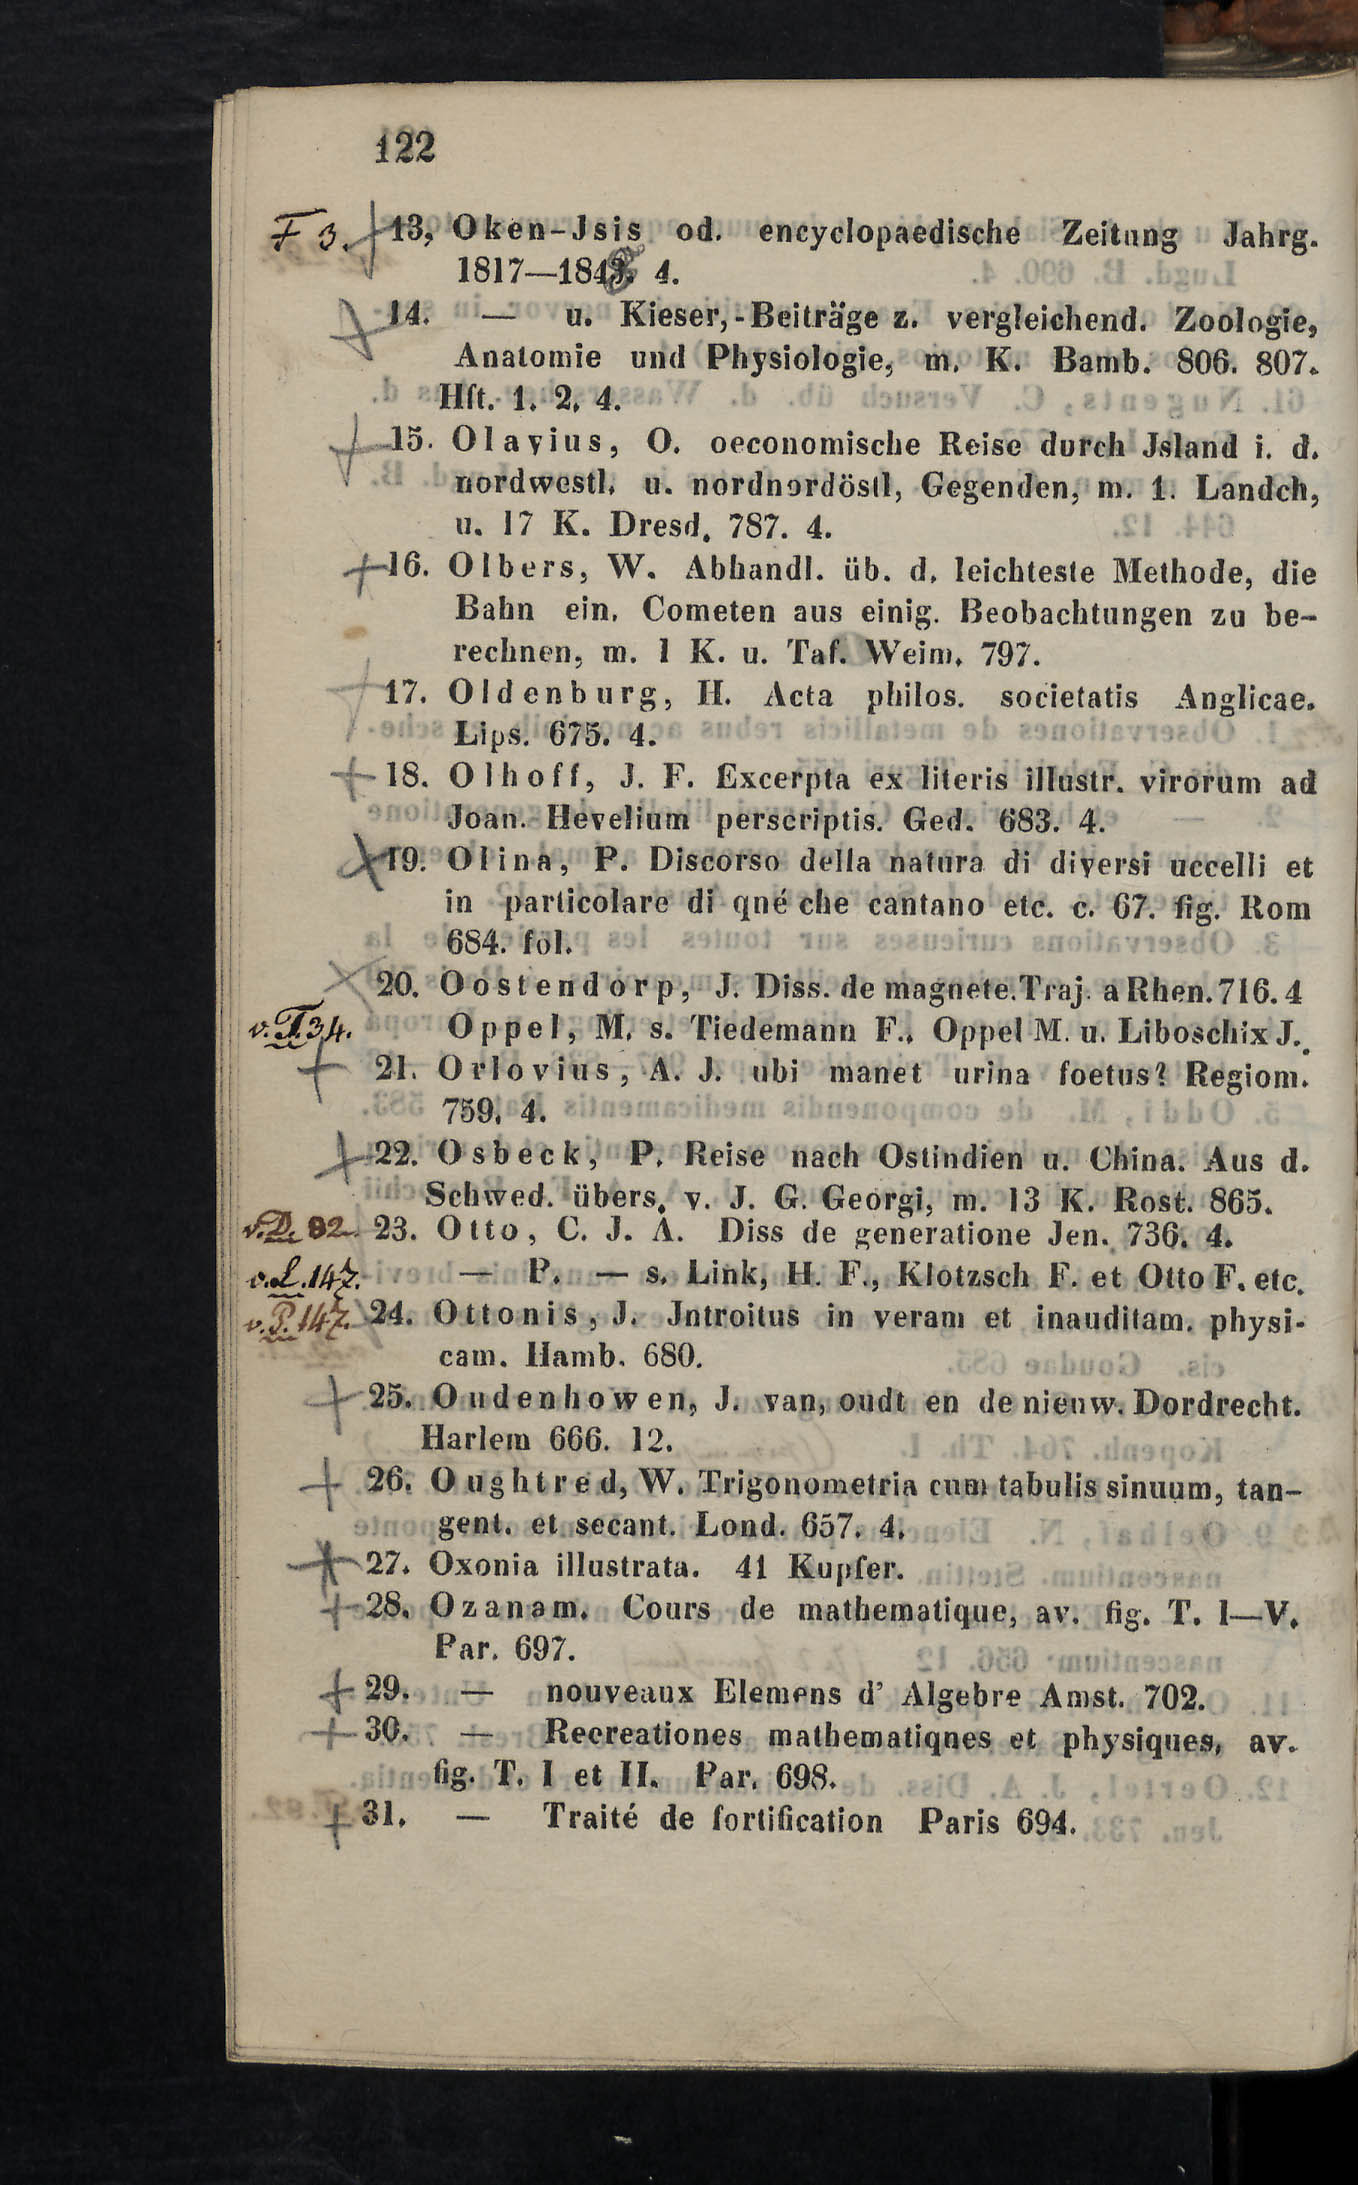 122
F 3. 13, Oken-Jsis od. encyclopaedische Zeitung Jahrg.
1817—1843. 4.
14. — u. Kieser,-Beiträge z. vergleichend. Zoologie,
Anatomie und Physiologie, m. K. Bamb. 806. 807.
Hft. 1. 2. 4.
15. Olavius, O. oeconomische Reise durch Jsland i. d.
nordwestl. u. nordnordöstl, Gegenden, m. 1. Landch,
u. 17 K. Dresd. 787. 4.
16. Olbers, W. Abhandl. üb. d. leichteste Methode, die
Bahn ein. Cometen aus einig. Beobachtungen zu be-
rechnen, m. 1 K. u. Taf. Weim. 797.
17. Oldenburg, H. Acta philos. societatis Anglicae.
Lips. 675. 4.
18. Olhoff, J. F. Excerpta ex literis illustr. virorum ad
Joan. Hevelium perscriptis. Ged. 683. 4.
19. Olina, P. Discorso della natura di diversi uccelli et
in particolare di qné che cantano etc. c. 67. fig. Rom
684. fol.
20. Oostendorp, J. Diss. de magnete. Traj. a Rhen. 716. 4
v. T. 34. Oppel, M. s. Tiedemann F., Oppel M. u. Liboschix J.
21. Orlovius, A. J. ubi manet urina foetus? Regiom.
759. 4.
22. Osbeck, P. Reise nach Ostindien u. China. Aus d.
Schwed. übers. v. J. G. Georgi, m. 13 K. Rost. 865.
v. D. 92. 23. Otto, C. J. A. Diss de generatione Jen. 736. 4.
v. L. 147. — P. — s. Link, H. F., Klotzsch F. et Otto F. etc.
v. P. 147. 24. Ottonis, J. Jntroitus in veram et inauditam. physi-
cam. Hamb. 680.
25. Oudenhowen, J. van, oudt en de nienw. Dordrecht.
Harlem 666. 12.
26. Oughtred, W. Trigonometria cum tabulis sinuum, tan-
gent. et secant. Lond. 657. 4.
27. Oxonia illustrata. 41 Kupfer.
28. Ozanam. Cours de mathematique, av. fig. T. I—V.
Par. 697.
29. — nouveaux Elemens d' Algebre Amst. 702.
30. — Recreationes mathematiqnes et physiques, av.
fig. T. I et II. Par. 698.
31. — Traité de fortification Paris 694.